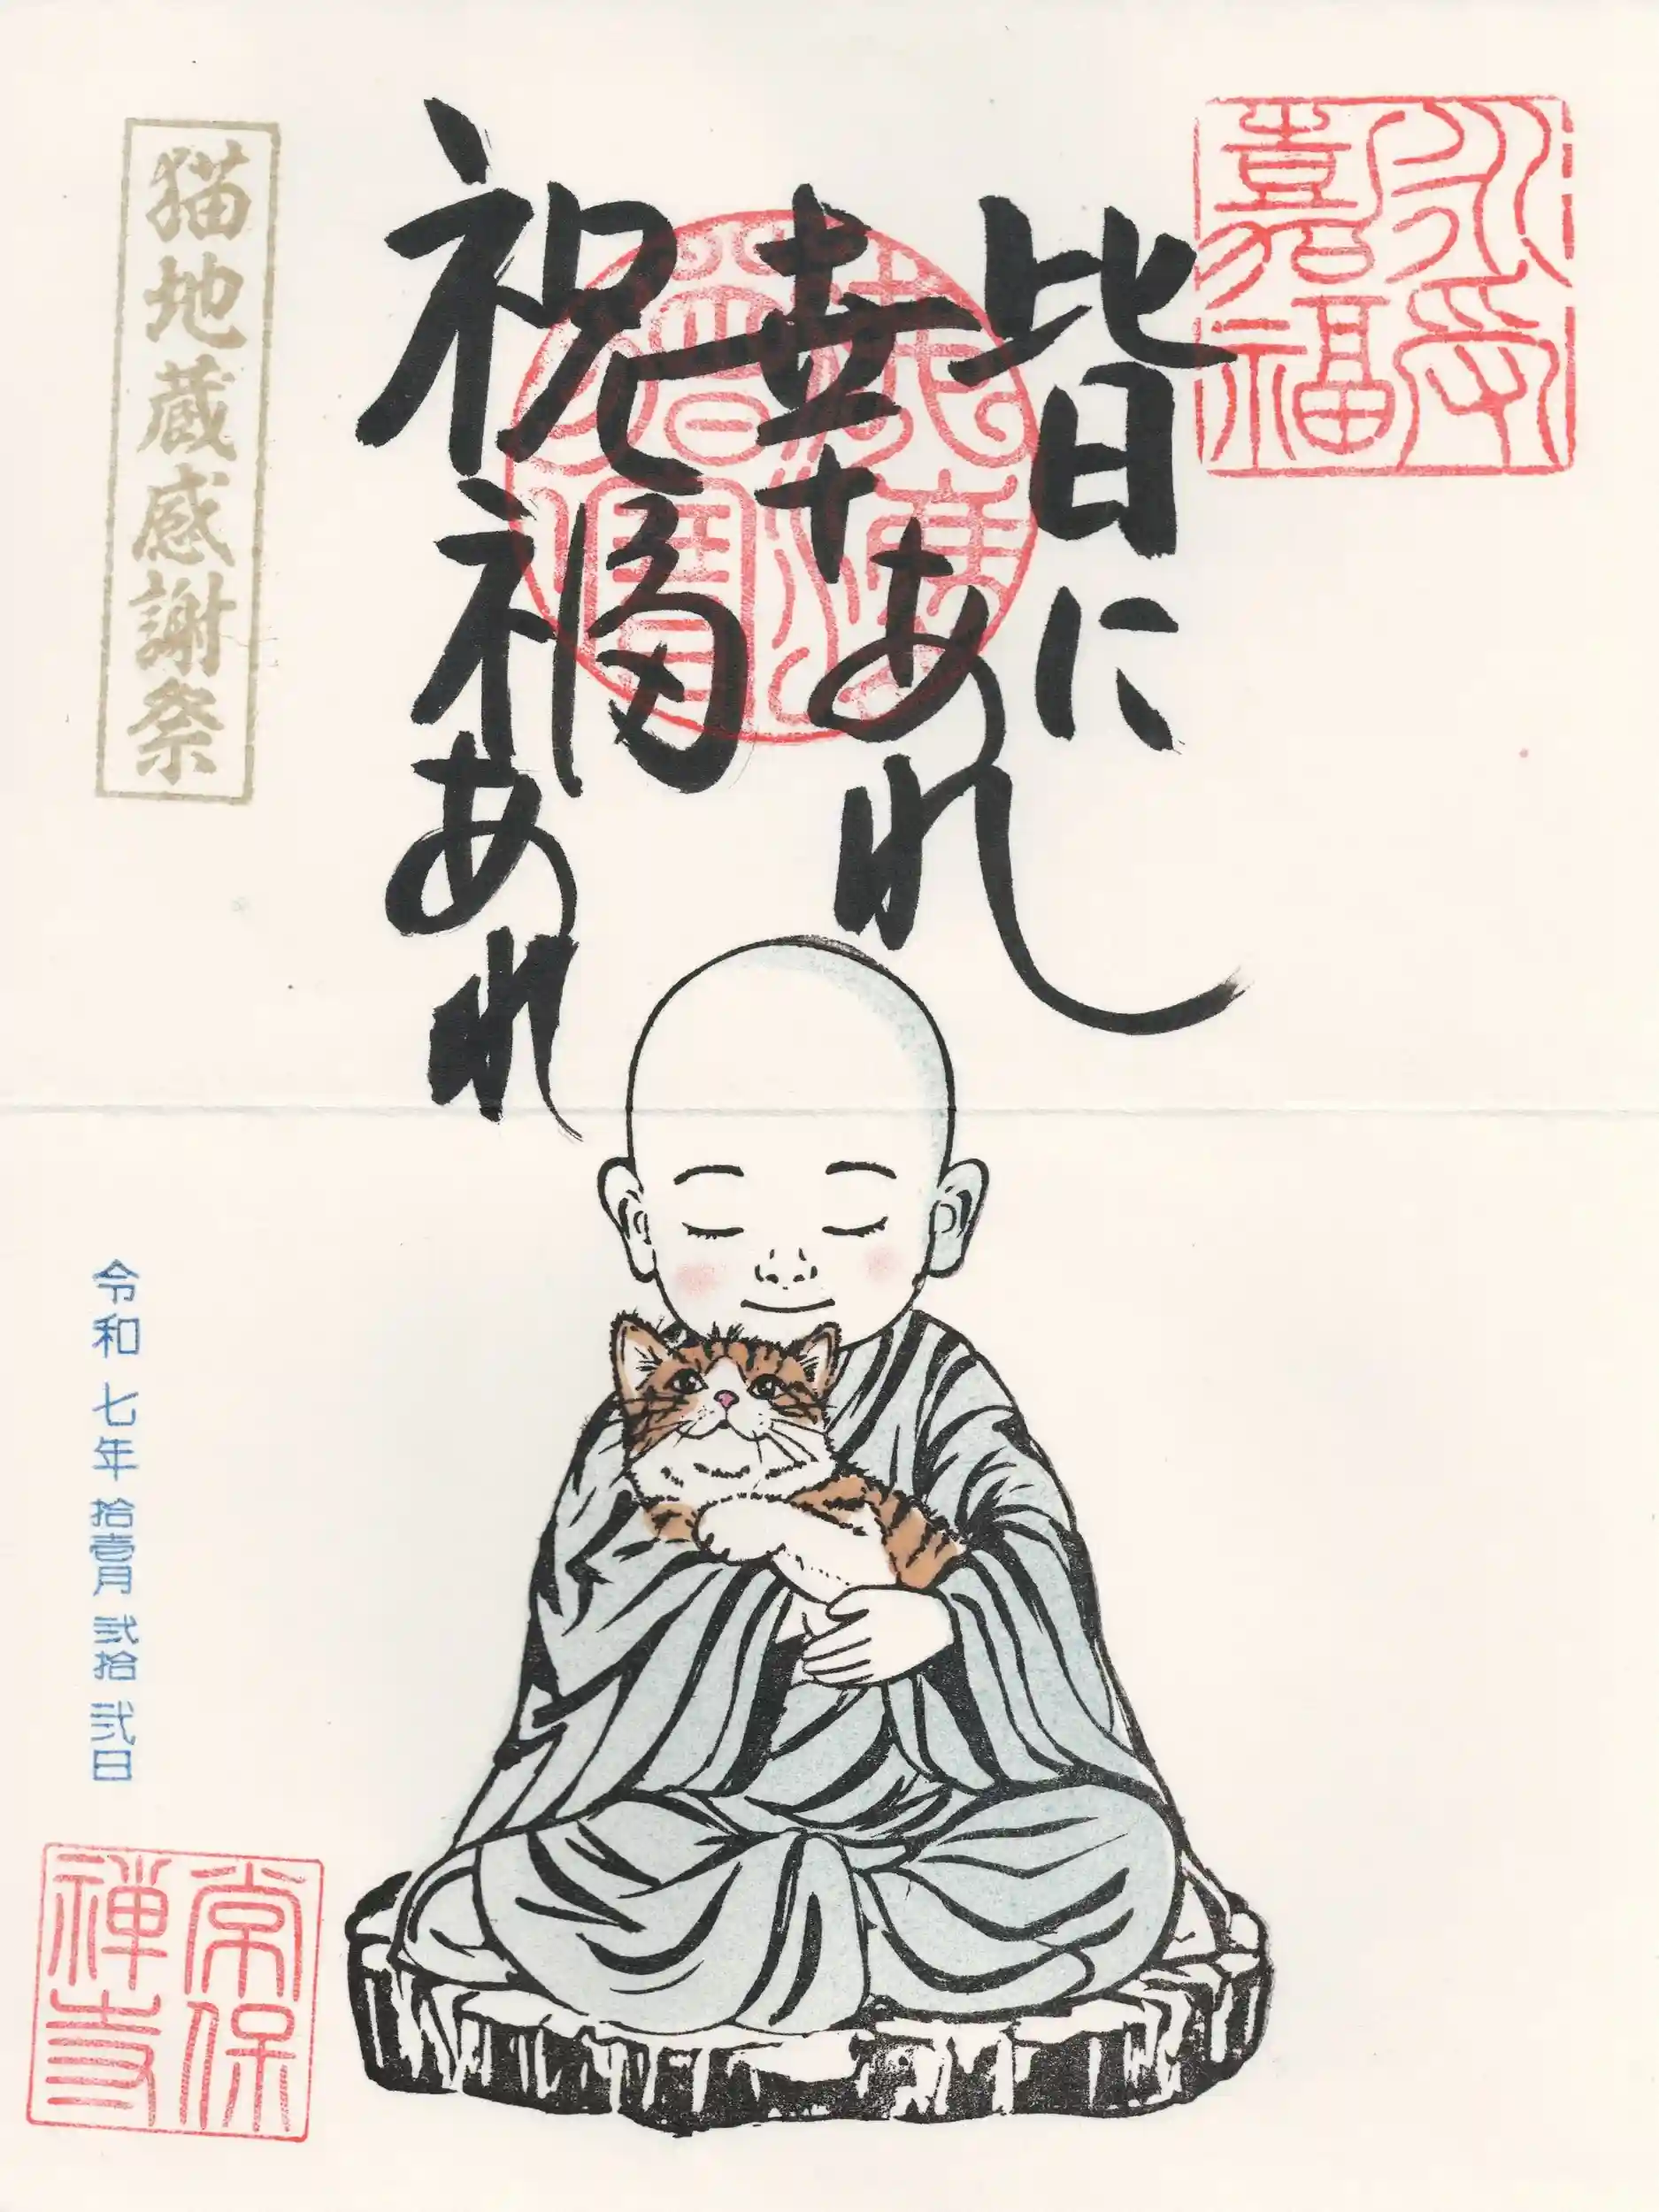 永受
嘉福
皆に
幸あれ
祝福あれ
猫地蔵感謝祭
令和七年拾壹月弐拾弐日
常保
禅寺